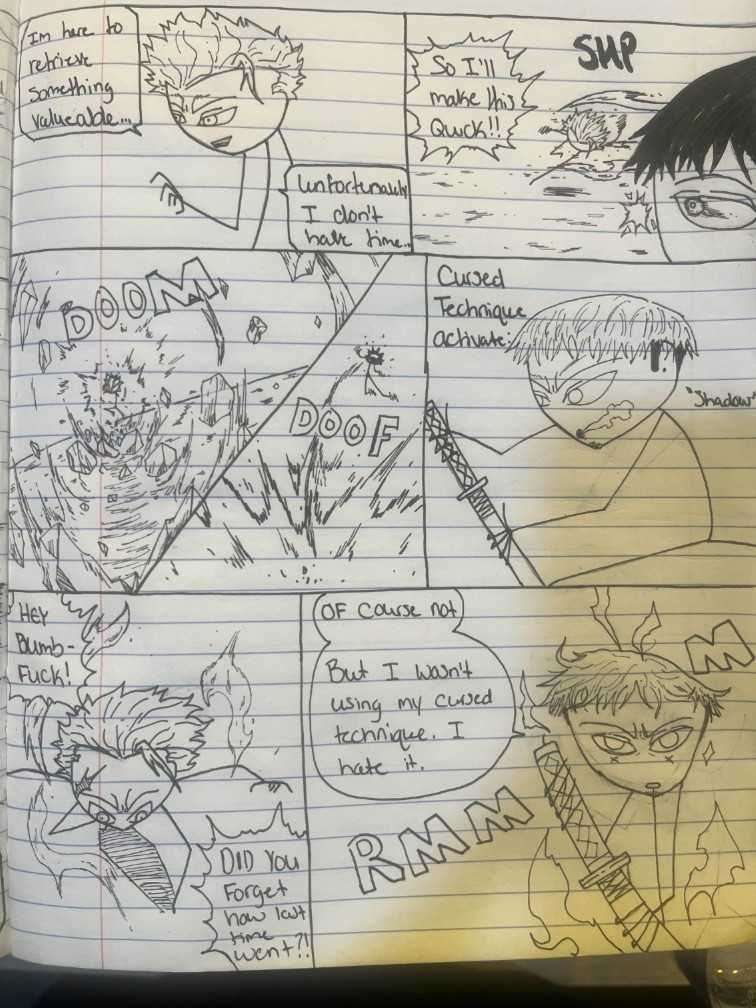 Im here to
retrieve
something
valueable...
unfortunately
I don't
have time...
SHP
So I'll
make this
Quick!!
DOOM
DOOF
Cursed
Technique
activate:
"Shadow"
HEY
Dumb-
Fuck!
DID YOU
Forget
how last
time
went?!
OF course not
But I wasn't
using my cursed
technique. I
hate it.
RMMM